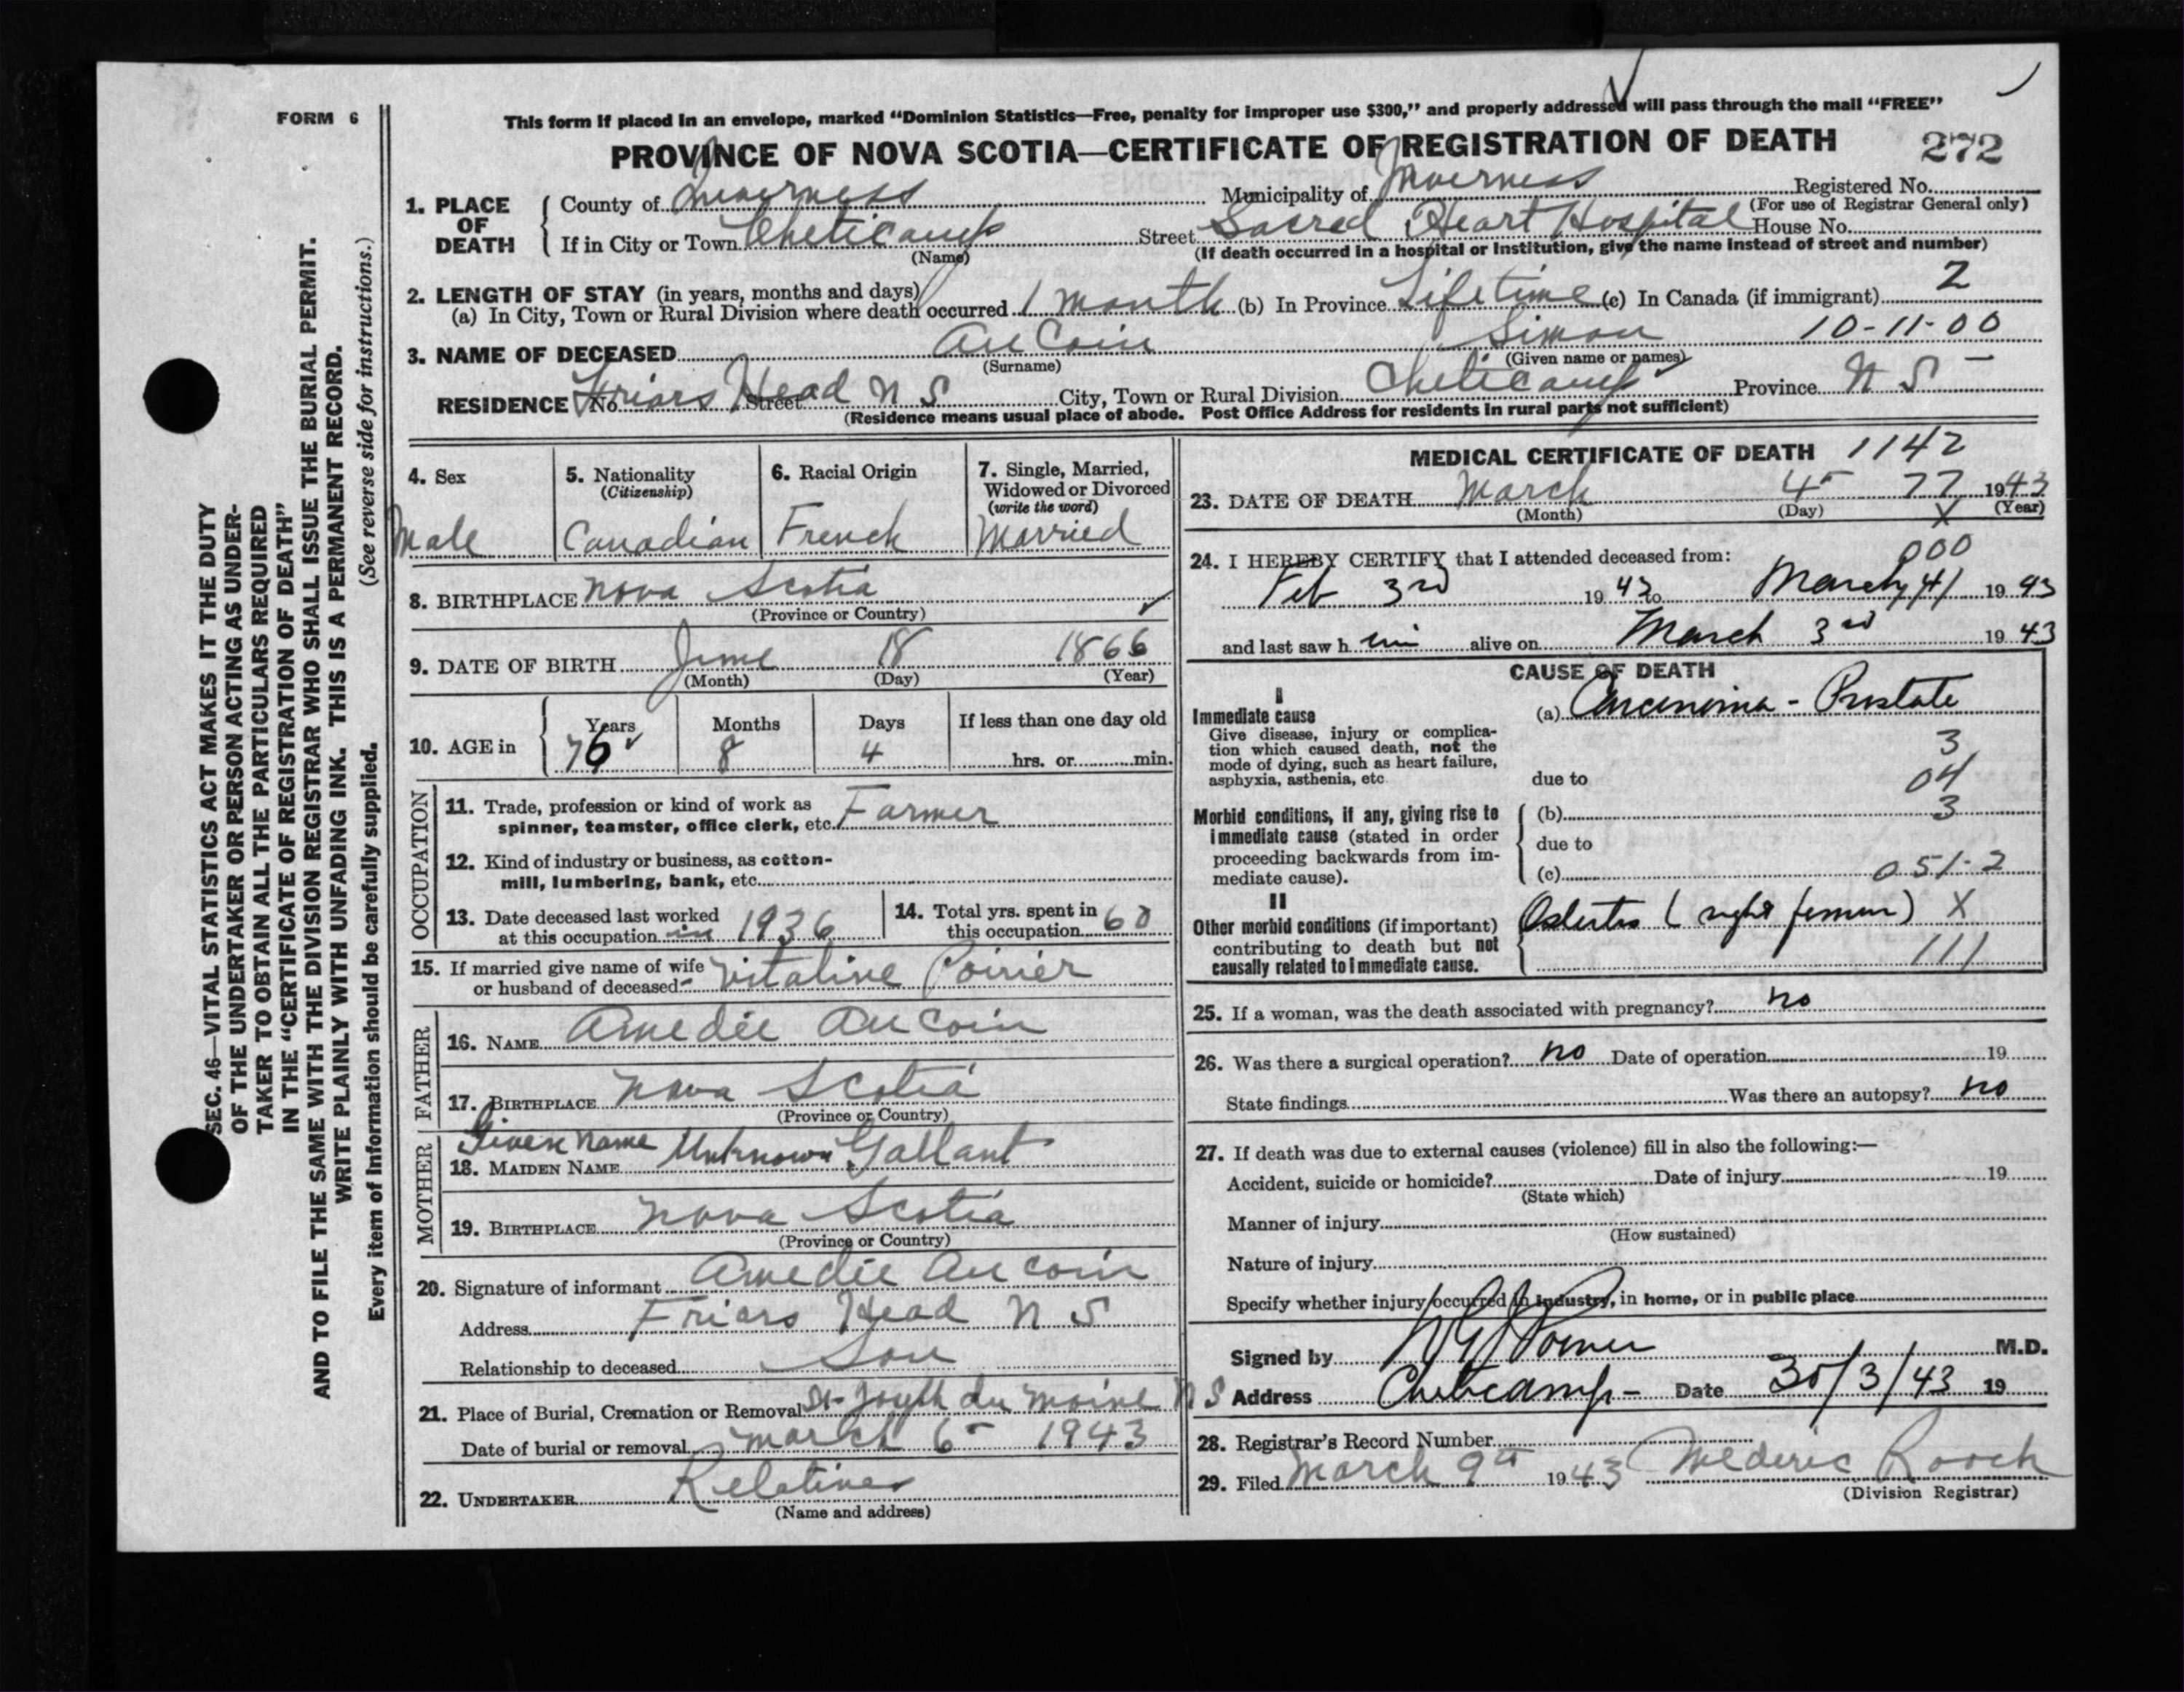 FORM 6
This form if placed in an envelope, marked “Dominion Statistics—Free, penalty for improper use $300,” and properly addressed will pass through the mail “FREE”
PROVINCE OF NOVA SCOTIA—CERTIFICATE OF REGISTRATION OF DEATH 272
1. PLACE OF DEATH
County of Inverness Municipality of Inverness Registered No.
(For use of Registrar General only)
If in City or Town Cheticamp Street Sacred Heart Hospital House No.
(Name) (If death occurred in a hospital or institution, give the name instead of street and number)
2. LENGTH OF STAY (in years, months and days) 2
(a) In City, Town or Rural Division where death occurred 1 month (b) In Province Lifetime (c) In Canada (if immigrant)
3. NAME OF DECEASED AuCoin Simon 10-11-00
(Surname) (Given name or names)
RESIDENCE No. Street Friars Head N S City, Town or Rural Division Cheticamp Province N S
(Residence means usual place of abode. Post Office Address for residents in rural parts not sufficient)
4. Sex
Male
5. Nationality
(Citizenship)
Canadian
6. Racial Origin
French
7. Single, Married,
Widowed or Divorced
(write the word)
Married
8. BIRTHPLACE Nova Scotia
(Province or Country)
9. DATE OF BIRTH June 18 1866
(Month) (Day) (Year)
10. AGE in
Years Months Days If less than one day old
76 8 4 hrs. or min.
OCCUPATION
11. Trade, profession or kind of work as
spinner, teamster, office clerk, etc. Farmer
12. Kind of industry or business, as cotton-
mill, lumbering, bank, etc.
13. Date deceased last worked
at this occupation in 1936
14. Total yrs. spent in
this occupation 60
15. If married give name of wife
or husband of deceased- Vitaline Poirier
FATHER
16. NAME Amedie AuCoin
17. BIRTHPLACE Nova Scotia
(Province or Country)
MOTHER
Given name
18. MAIDEN NAME Unknown Gallant
19. BIRTHPLACE Nova Scotia
(Province or Country)
20. Signature of informant Amedie Aucoin
Address Friars Head N S
Relationship to deceased Son
21. Place of Burial, Cremation or Removal St-Joseph du Moine N S
Date of burial or removal March 6 1943
22. UNDERTAKER Relatives
(Name and address)
MEDICAL CERTIFICATE OF DEATH 1142
23. DATE OF DEATH March 4 77 1943
(Month) (Day) (Year)
X
24. I HEREBY CERTIFY that I attended deceased from:
000
Feb 3rd 1943 to March 4 1943
and last saw h im alive on March 3rd 1943
CAUSE OF DEATH
I
Immediate cause
Give disease, injury or complica-
tion which caused death, not the
mode of dying, such as heart failure,
asphyxia, asthenia, etc
(a) Carcinoma - Prostate
3
due to 04
Morbid conditions, if any, giving rise to
immediate cause (stated in order
proceeding backwards from im-
mediate cause).
(b) 3
due to
(c) 051-2
II
Other morbid conditions (if important)
contributing to death but not
causally related to immediate cause.
Osteitis (right femur) X
111
25. If a woman, was the death associated with pregnancy? no
26. Was there a surgical operation? no Date of operation 19
State findings Was there an autopsy? no
27. If death was due to external causes (violence) fill in also the following:—
Accident, suicide or homicide? Date of injury 19
(State which)
Manner of injury
(How sustained)
Nature of injury
Specify whether injury occurred in industry, in home, or in public place
Signed by M.D.
Address Cheticamp- Date 30/3/43 19
28. Registrar's Record Number
29. Filed March 9th 1943 Mederic Roach
(Division Registrar)
SEC. 46—VITAL STATISTICS ACT MAKES IT THE DUTY
OF THE UNDERTAKER OR PERSON ACTING AS UNDER-
TAKER TO OBTAIN ALL THE PARTICULARS REQUIRED
IN THE “CERTIFICATE OF REGISTRATION OF DEATH”
AND TO FILE THE SAME WITH THE DIVISION REGISTRAR WHO SHALL ISSUE THE BURIAL PERMIT.
WRITE PLAINLY WITH UNFADING INK. THIS IS A PERMANENT RECORD.
(See reverse side for instructions.)
Every item of information should be carefully supplied.